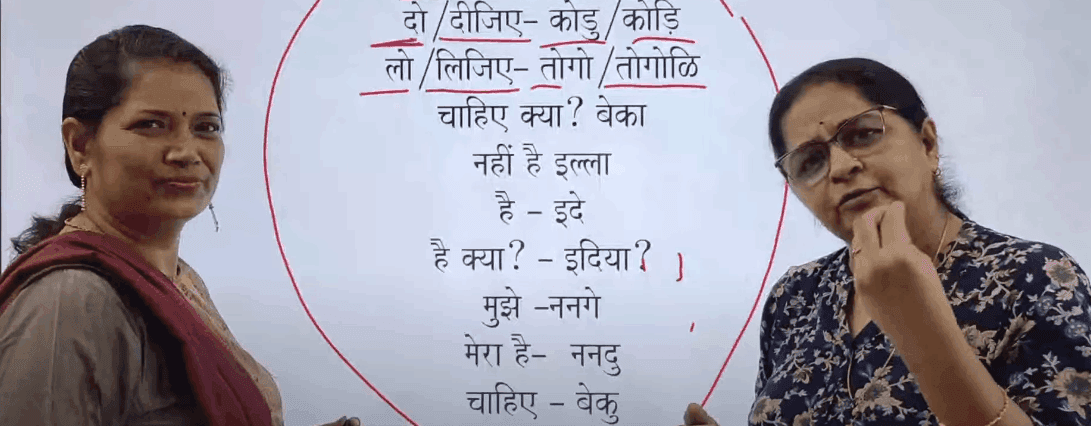 दो/दीजिए- कोडु/कोड़ि
लो/लिजिए- तोगो/तोगोळि
चाहिए क्या? बेका
नहीं है इल्ला
है - इदे
है क्या? - इदिया?
मुझे -ननगे
मेरा है- ननदु
चाहिए - बेकु